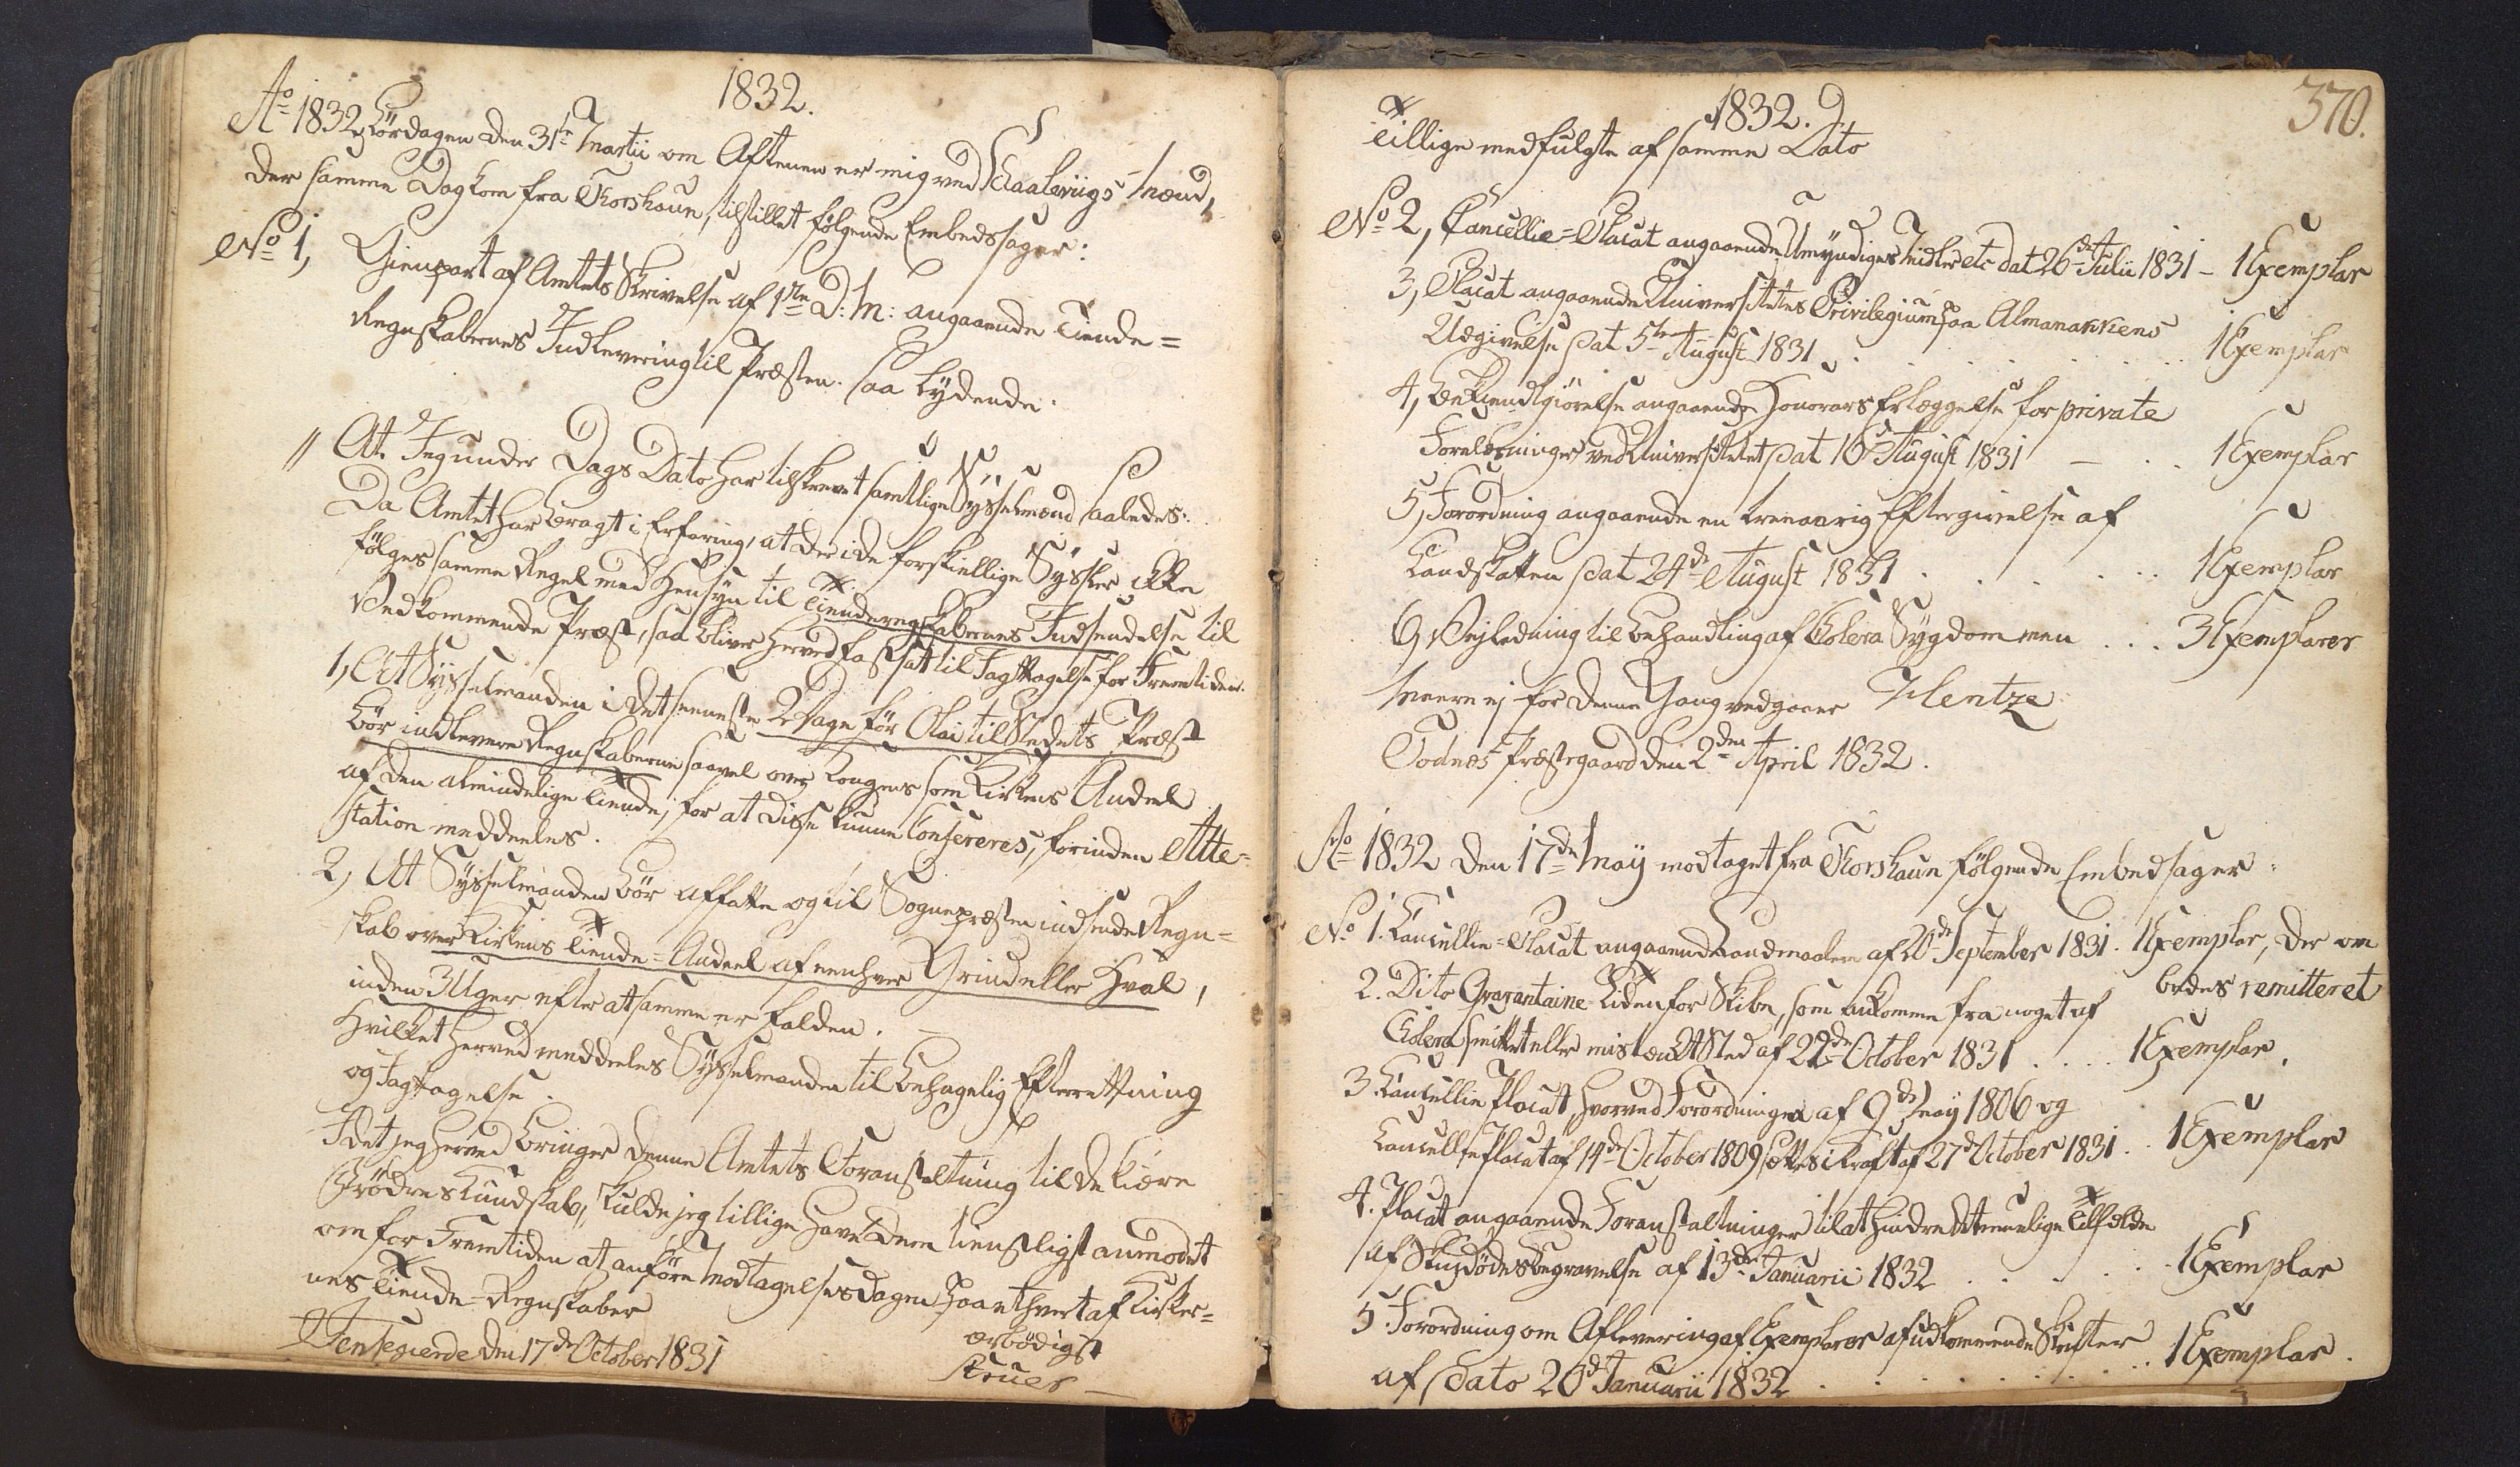 1832.
Ao 1832, Lördagen den 31te Martii om Aftenen er mig ved Skaalevigs-Mænd,
der samme Dag kom fra Thorshavn, tilstillet følgende Embedssager:
No 1, Gienpart af Amtets Skrivelse af 1ste D: M: angaaende Tiende=
Regnskabernes Indlevering til Præsten. saa lydende.
// At Jeg under Dags Dato har tilskrevet samtlige Sysselmænd saaledes:
Da Amtet har bragt i Erfaring, at der i de forskiellige Sysler ikke
følges samme Regel med Hensyn til Tienderegnskabernes Indsendelse til
Vedkommende Præst, saa bliver herved fastsat til Iagttagelse for Fremtiden.
1, At Sysselmanden i det seeneste 2 Dage før Olai til Stedets Præst
bør indlevere Regnskaberne saavel over Kongens som Kirkens Andeel
af den almindelige Tiende, for at disse kunne Confereres, forinden Atte=
station meddeeles.
2, At Sysselmanden bør affatte og til Sognepræsten indsende Regn=
skab over Kirkens Tiende=Andeel af eenhver Grind eller Hval,
inden 3 Uger efter at samme er falden. —
Hvilket herved meddeeles Sysselmanden til behagelig Efterretning
og Iagttagelse.
Idet jeg herved bringer denne Amtets Foranstaltning til de kiære
Brødres Kundskab, skulde jeg tillige have Dem tienstligst anmodet
om for Fremtiden at anføre Modtagelsesdagen paa ethvert af Kirker=
nes Tiende=Regnskaber
den 17de October 1831
ærbødigst
1832.
370.
Tillige medfulgte af samme Dato
No 2, Cancellie=Placat angaaende Umyndiges Midler etc dat 26de Julii 1831 — 1 Exemplar
3, Placat angaaende Universitetes Privilegium paa Almanakkens
Udgivelse dat 5te August 1831 . . . . . . 1 Exemplar
4, Bekiendtgiørelse angaaende Honorars Erlæggelse for private
Forelæsninger ved Universitetet dat 16 August 1831 — . . 1 Exemplar
5, Forordning angaaende en treaarig Eftergivelse af
Landskatten dat 24de August 1831 . . . . . . 1 Exemplar
6, Vejledning til Behandling af Cholera Sygdommen . . . 3 Exemplarer
Meere ej for denne Gang vedgaaer Hentze
Todnæs Præstegaard den 2den April 1832.
Ao 1832 den 17de May modtaget fra Thorshavn følgende Embedsager:
No 1. Cancellie=Placat angaaende af 20de September 1831. 1 Exemplar, der om
bedes remitteret
2. Dito Qvarantaine Tiden for Skibe, som ankomme fra noget af
Cholera smittet eller mistænkt Sted af 22de October 1831 . . . . 1 Exemplar.
3 Cancellie Placat, hvorved Forordningen af 9de May 1806 og
Cancellie Placat af 14de October 1809 sættes i Kraft af 27d October 1831. . 1 Exemplar
4. Placat angaaende Foranstaltninger til at hindre det muelige Tilfælde
af Skindødes begravelse af 13de Januarii 1832 . . . . . . 1 Exemplar
5. Forordning om Aflevering af Exemplarer af udkommende Skrifter
af dato 20d Januarii 1832 . . . . . . . . 1 Exemplar.